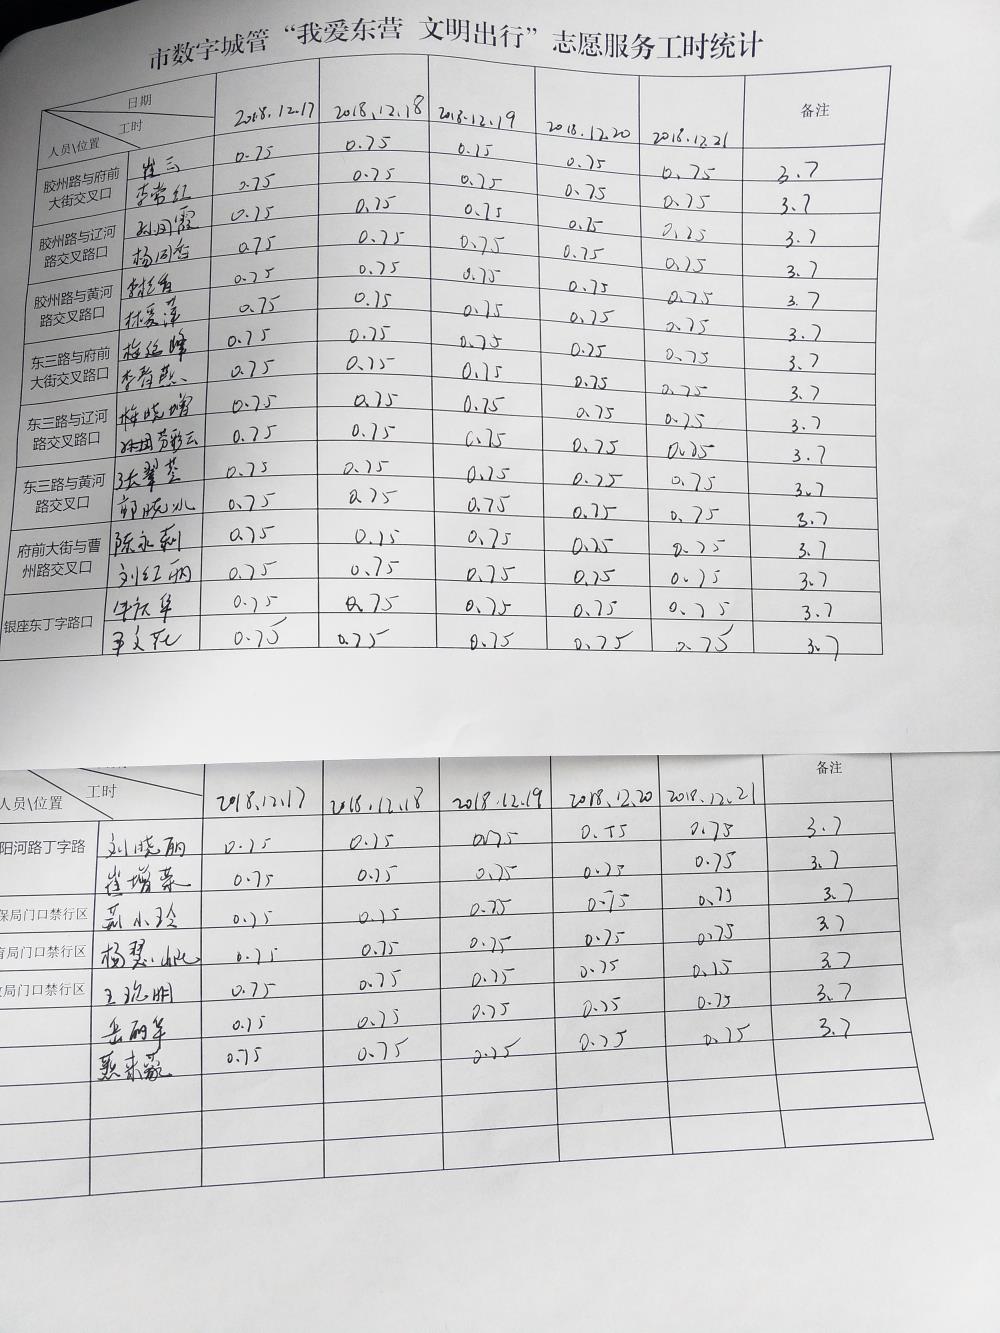 市数字城管“我爱东营 文明出行”志愿服务工时统计
日期 工时 人员\位置 2018.12.17 2018.12.18 2018.12.19 2018.12.20 2018.12.21 备注
胶州路与府前大街交叉口 崔云 0.75 0.75 0.75 0.75 0.75 3.7
李常红 0.75 0.75 0.75 0.75 0.75 3.7
胶州路与辽河路交叉路口 0.75 0.75 0.75 0.75 0.75 3.7
杨同香 0.75 0.75 0.75 0.75 0.75 3.7
胶州路与黄河路交叉路口 0.75 0.75 0.75 0.75 0.75 3.7
林爱萍 0.75 0.75 0.75 0.75 0.75 3.7
东三路与府前大街交叉路口 0.75 0.75 0.75 0.75 0.75 3.7
0.75 0.75 0.75 0.75 0.75 3.7
东三路与辽河路交叉路口 梅晓增 0.75 0.75 0.75 0.75 0.75 3.7
0.75 0.75 0.75 0.75 0.75 3.7
东三路与黄河路交叉口 张翠莲 0.75 0.75 0.75 0.75 0.75 3.7
郭晓冰 0.75 0.75 0.75 0.75 0.75 3.7
府前大街与曹州路交叉口 陈永莉 0.75 0.75 0.75 0.75 0.75 3.7
刘红丽 0.75 0.75 0.75 0.75 0.75 3.7
银座东丁字路口 0.75 0.75 0.75 0.75 0.75 3.7
0.75 0.75 0.75 0.75 0.75 3.7
人员\位置 工时 2018.12.17 2018.12.18 2018.12.19 2018.12.20 2018.12.21 备注
阳河路丁字路 刘晓丽 0.75 0.75 0.75 0.75 0.75 3.7
崔增荣 0.75 0.75 0.75 0.75 0.75 3.7
保局门口禁行区 苏小玲 0.75 0.75 0.75 0.75 0.75 3.7
育局门口禁行区 0.75 0.75 0.75 0.75 0.75 3.7
局门口禁行区 王聪明 0.75 0.75 0.75 0.75 0.75 3.7
岳丽华 0.75 0.75 0.75 0.75 0.75 3.7
0.75 0.75 0.75 0.75 0.75 3.7